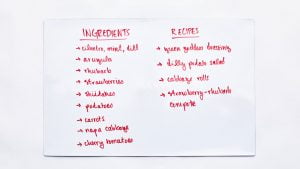 INGREDIENTS
→ cilantro, mint, dill
→ arugula
→ rhubarb
→ strawberries
→ shiitakes
→ potatoes
→ carrots
→ napa cabbage
→ cherry tomatoes
RECIPES
→ green goddess dressing
→ dilly potato salad
→ cabbage rolls
→ strawberry-rhubarb
compote